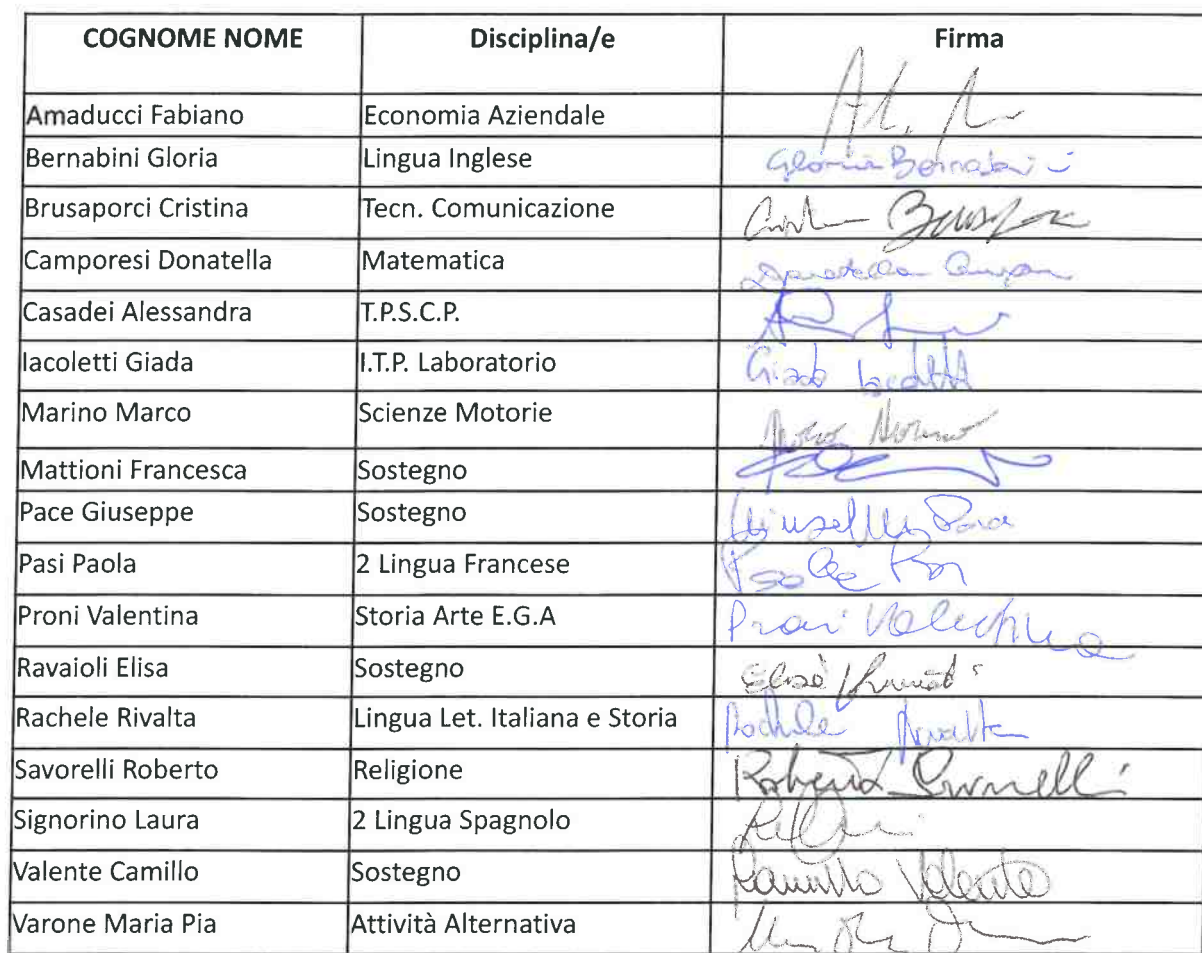 COGNOME NOME Disciplina/e Firma
Amaducci Fabiano Economia Aziendale
Bernabini Gloria Lingua Inglese Gloria Bernabini
Brusaporci Cristina Tecn. Comunicazione
Camporesi Donatella Matematica Donatella
Casadei Alessandra T.P.S.C.P.
Iacoletti Giada I.T.P. Laboratorio Giada Iacoletti
Marino Marco Scienze Motorie Marco Marino
Mattioni Francesca Sostegno
Pace Giuseppe Sostegno Giuseppe Pace
Pasi Paola 2 Lingua Francese Paola Pasi
Proni Valentina Storia Arte E.G.A Proni Valentina
Ravaioli Elisa Sostegno Elisa
Rachele Rivalta Lingua Let. Italiana e Storia Rachele Rivalta
Savorelli Roberto Religione Roberto Savorelli
Signorino Laura 2 Lingua Spagnolo
Valente Camillo Sostegno Camillo Valente
Varone Maria Pia Attività Alternativa